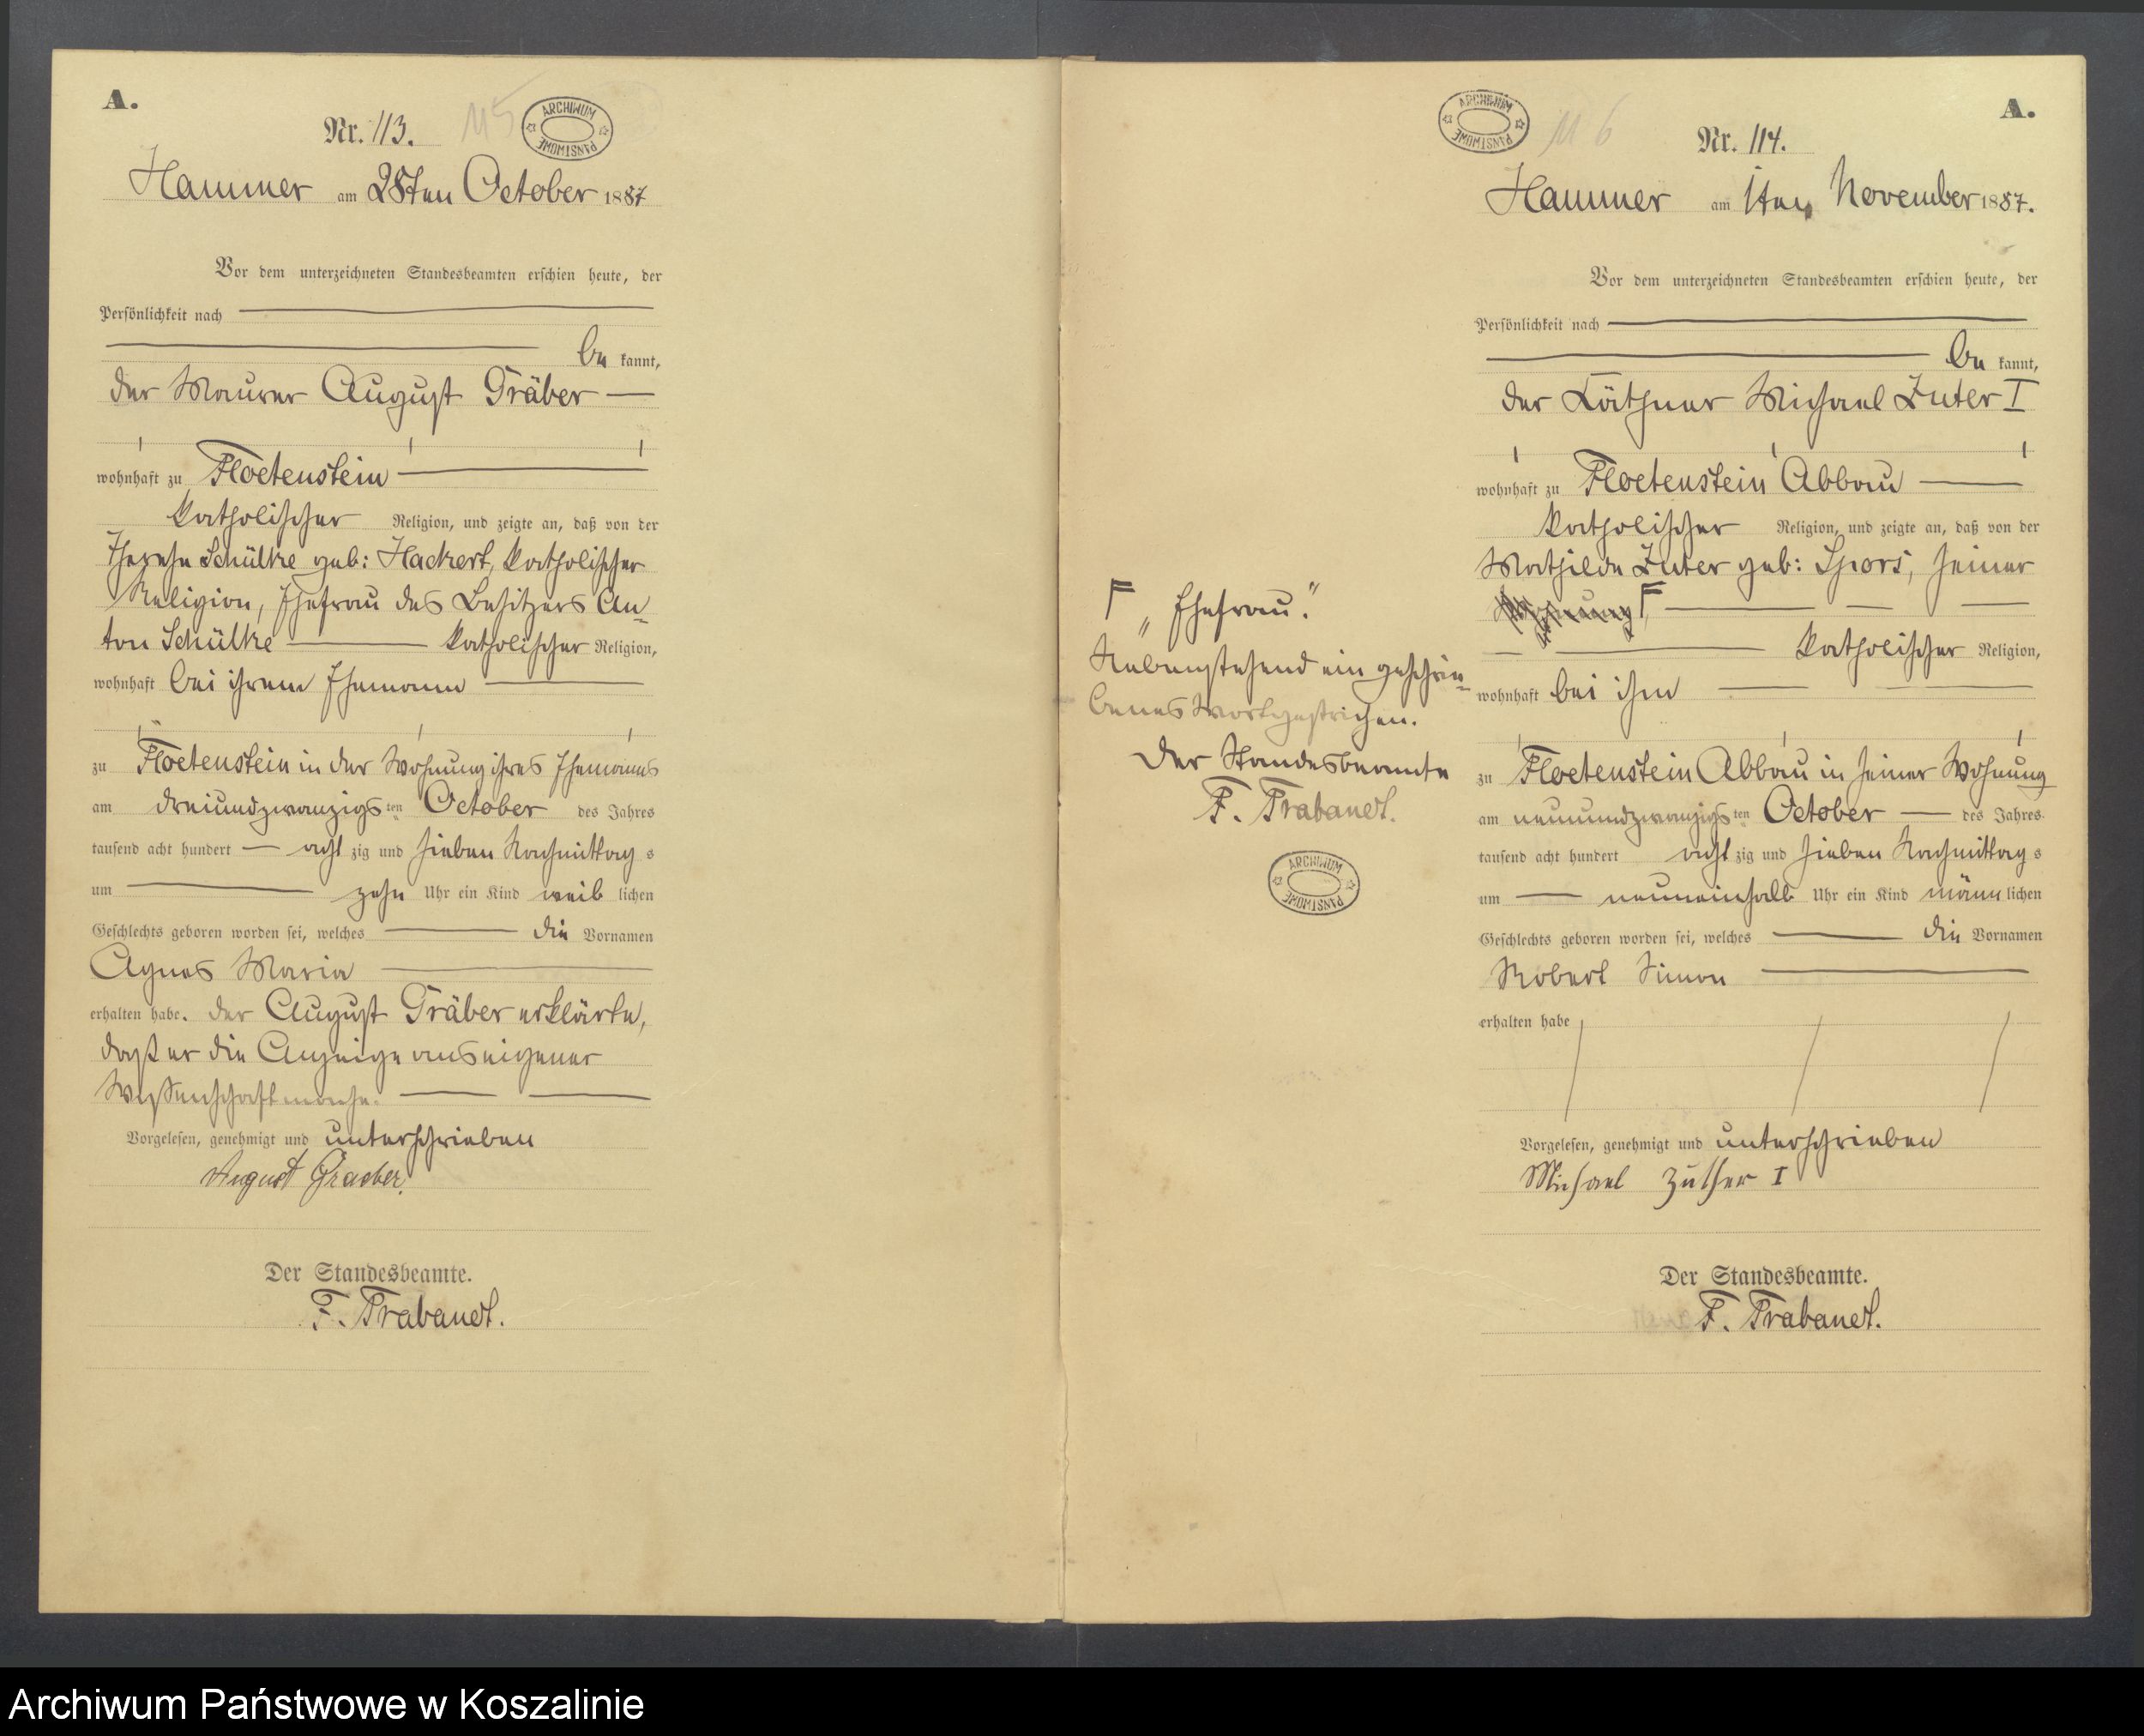 A.
Nr. 113.
115
ARCHIWUM PAŃSTWOWE
Hammer am 28ten October 1887
Vor dem unterzeichneten Standesbeamten erschien heute, der
Persönlichkeit nach
be kannt,
der Maurer August Gräber
wohnhaft zu Floetenstein
katholischer Religion, und zeigte an, daß von der
Therese Schülke geb: Hackert, katholischer
Religion, Ehefrau des Besitzers An-
ton Schülke katholischer Religion,
wohnhaft bei ihrem Ehemann
zu Floetenstein in der Wohnung ihres Ehemanns
am dreiundzwanzigs ten October des Jahres
tausend acht hundert acht zig und sieben Nachmittag s
um zehn Uhr ein Kind weib lichen
Geschlechts geboren worden sei, welches die Vornamen
Agnes Maria
erhalten habe. Der August Gräber erklärte,
daß er die Anzeige aus eigener
Wissenschaft mache.
Vorgelesen, genehmigt und unterschrieben
August Graeber.
Der Standesbeamte.
F. Trabandt.
F „Ehefrau."
Nebenstehend ein geschrie-
benes Wort gestrichen.
Der Standesbeamte
F. Trabandt.
ARCHIWUM PAŃSTWOWE
A.
ARCHIWUM PAŃSTWOWE
116
Nr. 114.
Hammer am 1ten November 1887.
Vor dem unterzeichneten Standesbeamten erschien heute, der
Persönlichkeit nach
be kannt,
der Käthner Michael Zuter I
wohnhaft zu Floetenstein Abbau
katholischer Religion, und zeigte an, daß von der
Mathilde Zuter geb: Spors, seiner
Wohnung F
katholischer Religion,
wohnhaft bei ihm
zu Floetenstein Abbau in seiner Wohnung
am neunundzwanzigs ten October des Jahres
tausend acht hundert acht zig und sieben Nachmittag s
um neuneinhalb Uhr ein Kind männ lichen
Geschlechts geboren worden sei, welches die Vornamen
Robert Simon
erhalten habe
Vorgelesen, genehmigt und unterschrieben
Michael Zuther I
Der Standesbeamte.
F. Trabandt.
Archiwum Państwowe w Koszalinie